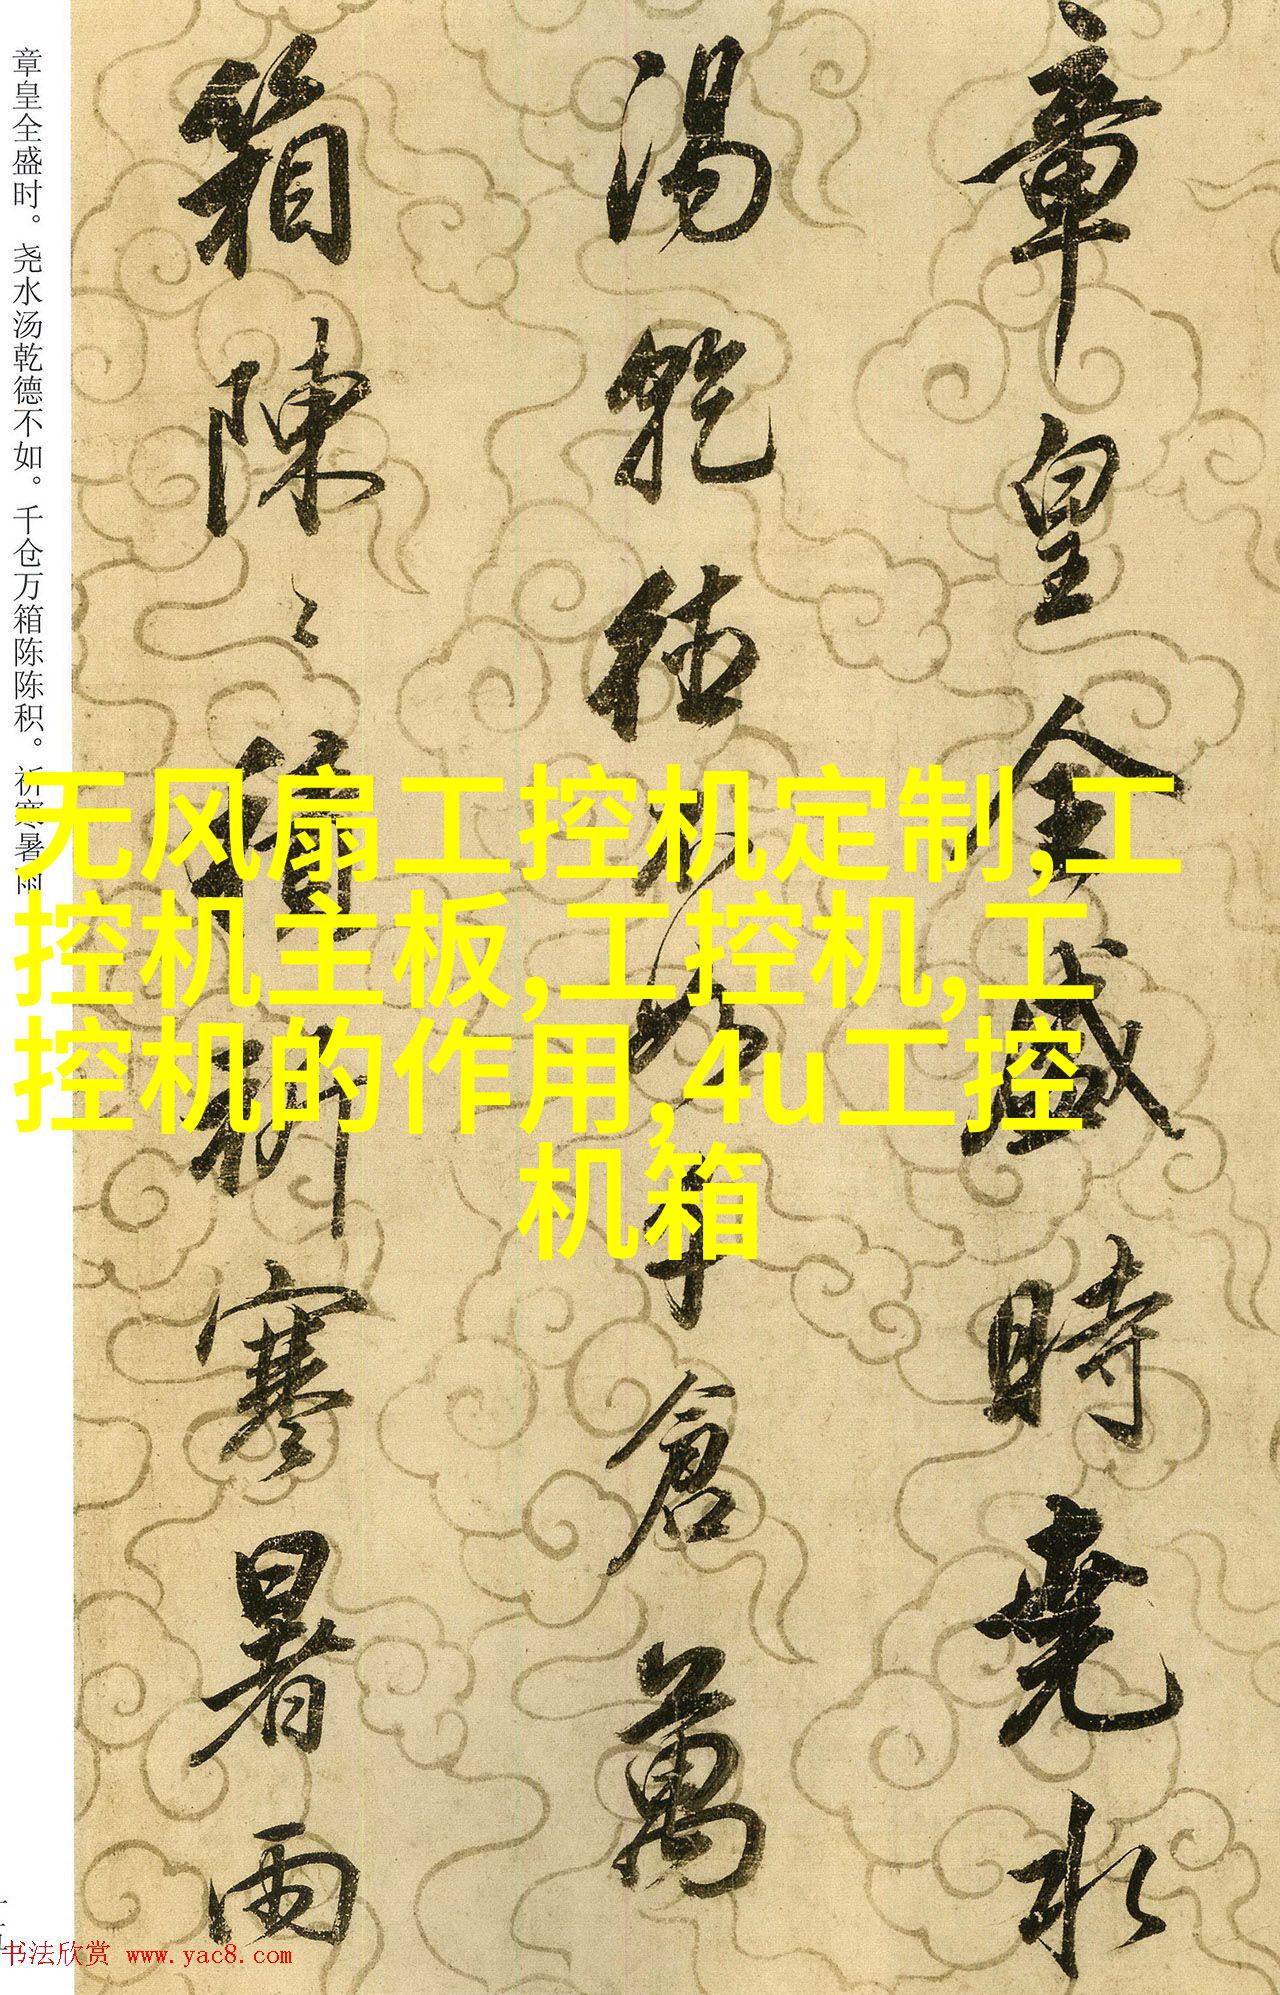 章皇全盛時堯水
湯乾德不如千倉萬
箱陳〻積祈寒暑雨
章皇全盛时。尧水汤乾德不如。千仓万箱陈陈积。祈寒暑雨
无风扇工控机定制,工
控机主板,工控机,工
控机的作用,4u工控
机箱
书法欣赏 www.yac8.com